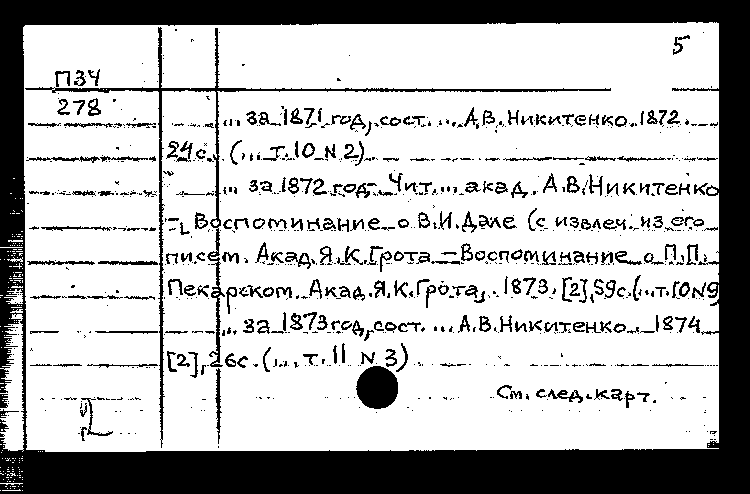 5
П34
278
... за 1871 год, сост. ... А.В. Никитенко. 1872.
24с. (... т. 10 N 2)
... за 1872 год. Чит. ... акад. А.В. Никитенко
– Воспоминание о В.И. Дале (с извлеч. из его
писем. Акад. Я.К. Грота. – Воспоминание о П.П.
Пекарском. Акад. Я.К. Грота, . 1873. [2], 59с. (... т. 10 N 9)
... за 1873 год, сост. ... А.В. Никитенко. 1874
[2], 26с. (... т. 11 N 3)
См. след. карт.